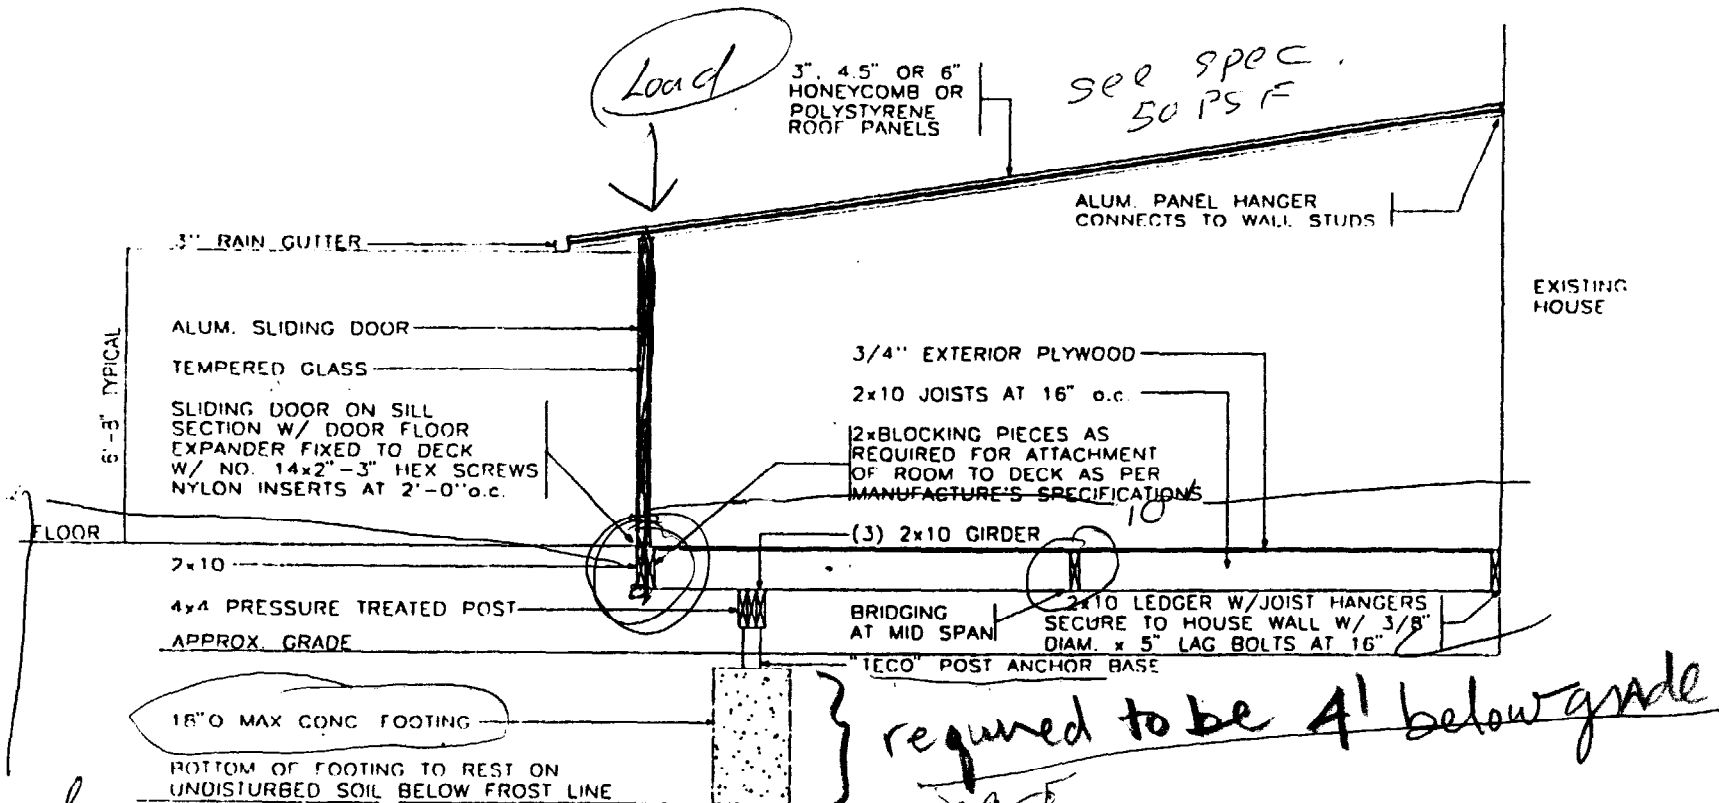 Load
3", 4.5" OR 6"
HONEYCOMB OR
POLYSTYRENE
ROOF PANELS
see spec.
50 PSF
ALUM. PANEL HANGER
CONNECTS TO WALL STUDS
3" RAIN GUTTER
EXISTING
HOUSE
6'-3" TYPICAL
ALUM. SLIDING DOOR
TEMPERED GLASS
SLIDING DOOR ON SILL
SECTION W/ DOOR FLOOR
EXPANDER FIXED TO DECK
W/ NO. 14x2"-3" HEX SCREWS
NYLON INSERTS AT 2'-0"o.c.
3/4" EXTERIOR PLYWOOD
2x10 JOISTS AT 16" o.c.
2xBLOCKING PIECES AS
REQUIRED FOR ATTACHMENT
OF ROOM TO DECK AS PER
MANUFACTURE'S SPECIFICATIONS
10'
FLOOR
(3) 2x10 GIRDER
2x10
4x4 PRESSURE TREATED POST
APPROX. GRADE
BRIDGING
AT MID SPAN
2x10 LEDGER W/JOIST HANGERS
SECURE TO HOUSE WALL W/ 3/8"
DIAM. x 5" LAG BOLTS AT 16"
"TECO" POST ANCHOR BASE
18"O MAX CONC FOOTING
required to be 4' below grade
BOTTOM OF FOOTING TO REST ON
UNDISTURBED SOIL BELOW FROST LINE